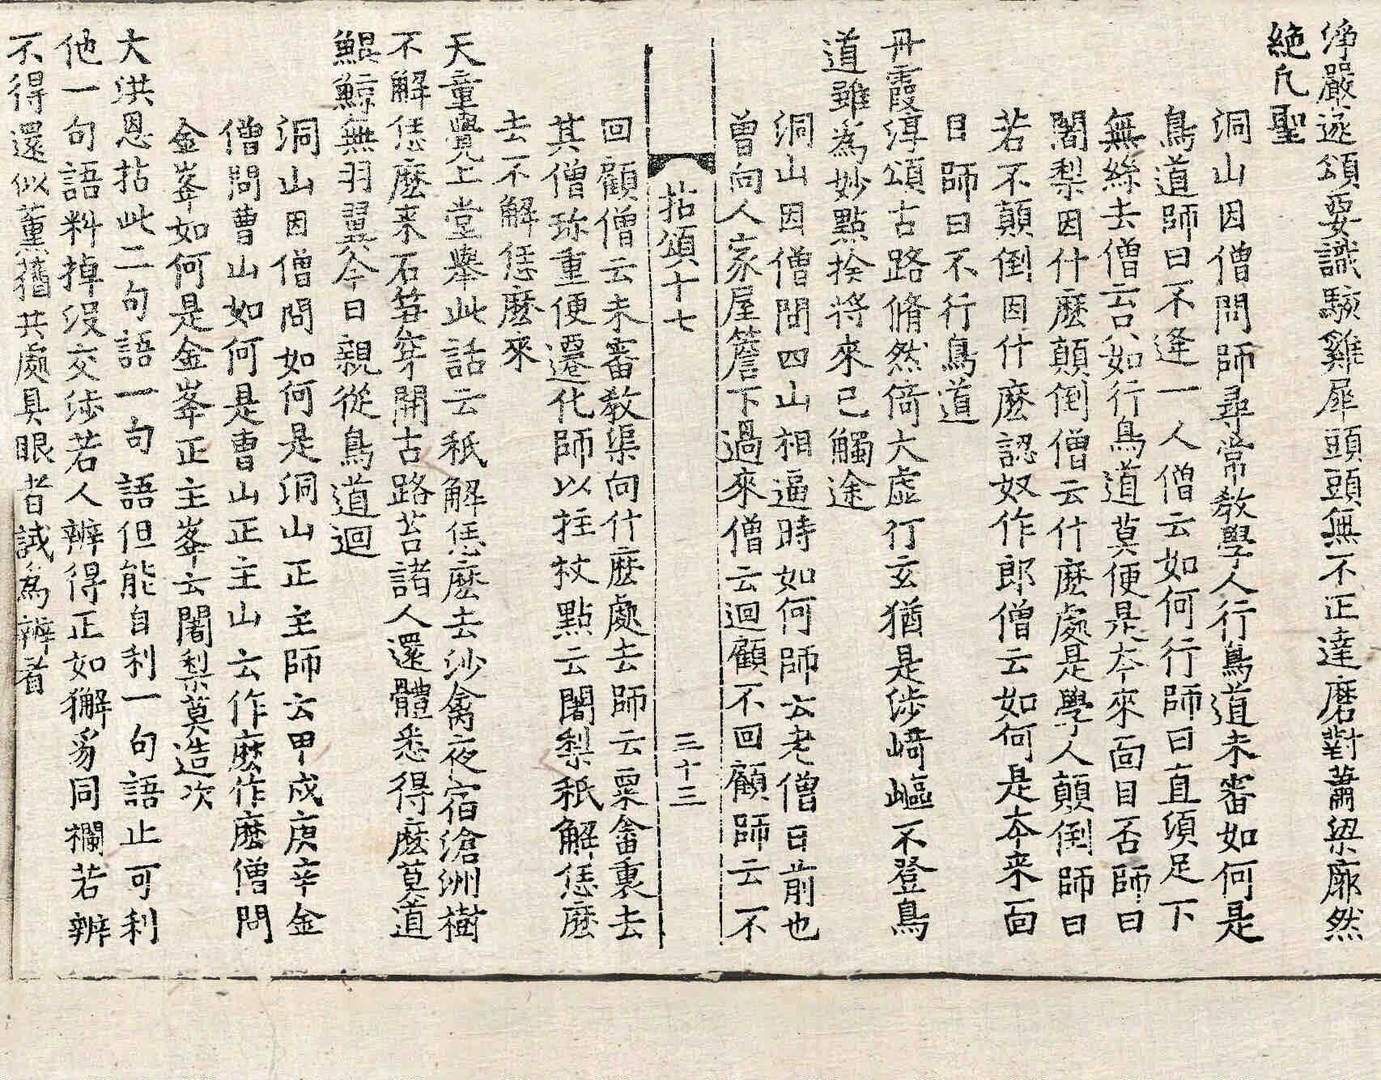 淨嚴遂頌要識駭雞犀頭頭無不正達磨對蕭梁廓然
絶凡聖
洞山因僧問師尋常教學人行鳥道未審如何是
鳥道師曰不逢一人僧云如何行師曰直須足下
無絲去僧云只如行鳥道莫便是夲來面目否師曰
闍梨因什麽顛倒僧云什麽處是學人顛倒師曰
若不顛倒因什麽認奴作郎僧云如何是夲来面
目師曰不行鳥道
丹霞淳頌古路翛然倚大虛行玄猶是涉崎嶇不登鳥
道雖為妙點捡將來已觸途
洞山因僧問四山相逼時如何師云老僧日前也
曽向人家屋簷下過來僧云迴顧不回顧師云不
拈頌十七
三十三
回顧僧云未審教渠向什麽處去師云粟畬裏去
其僧珎重便遷化師以拄杖點云闍梨秖解恁麽
去不解恁麽來
天童覺上堂舉此話云秖解恁麽去沙禽夜宿滄洲樹
不解恁麽来石笋穿開古路苔諸人還體悉得麽莫道
鯤鯨無羽翼今日親從鳥道迴
洞山因僧問如何是洞山正主師云甲戍庚辛金
僧問曹山如何是曹山正主山云作麽作麽僧問
金峯如何是金峯正主峯云闍梨莫造次
大洪恩拈此二句語一句語但能自利一句語止可利
他一句語料掉沒交涉若人辨得正如獬豸同欄若辨
不得還似薰蕕共處具眼者試爲辨看